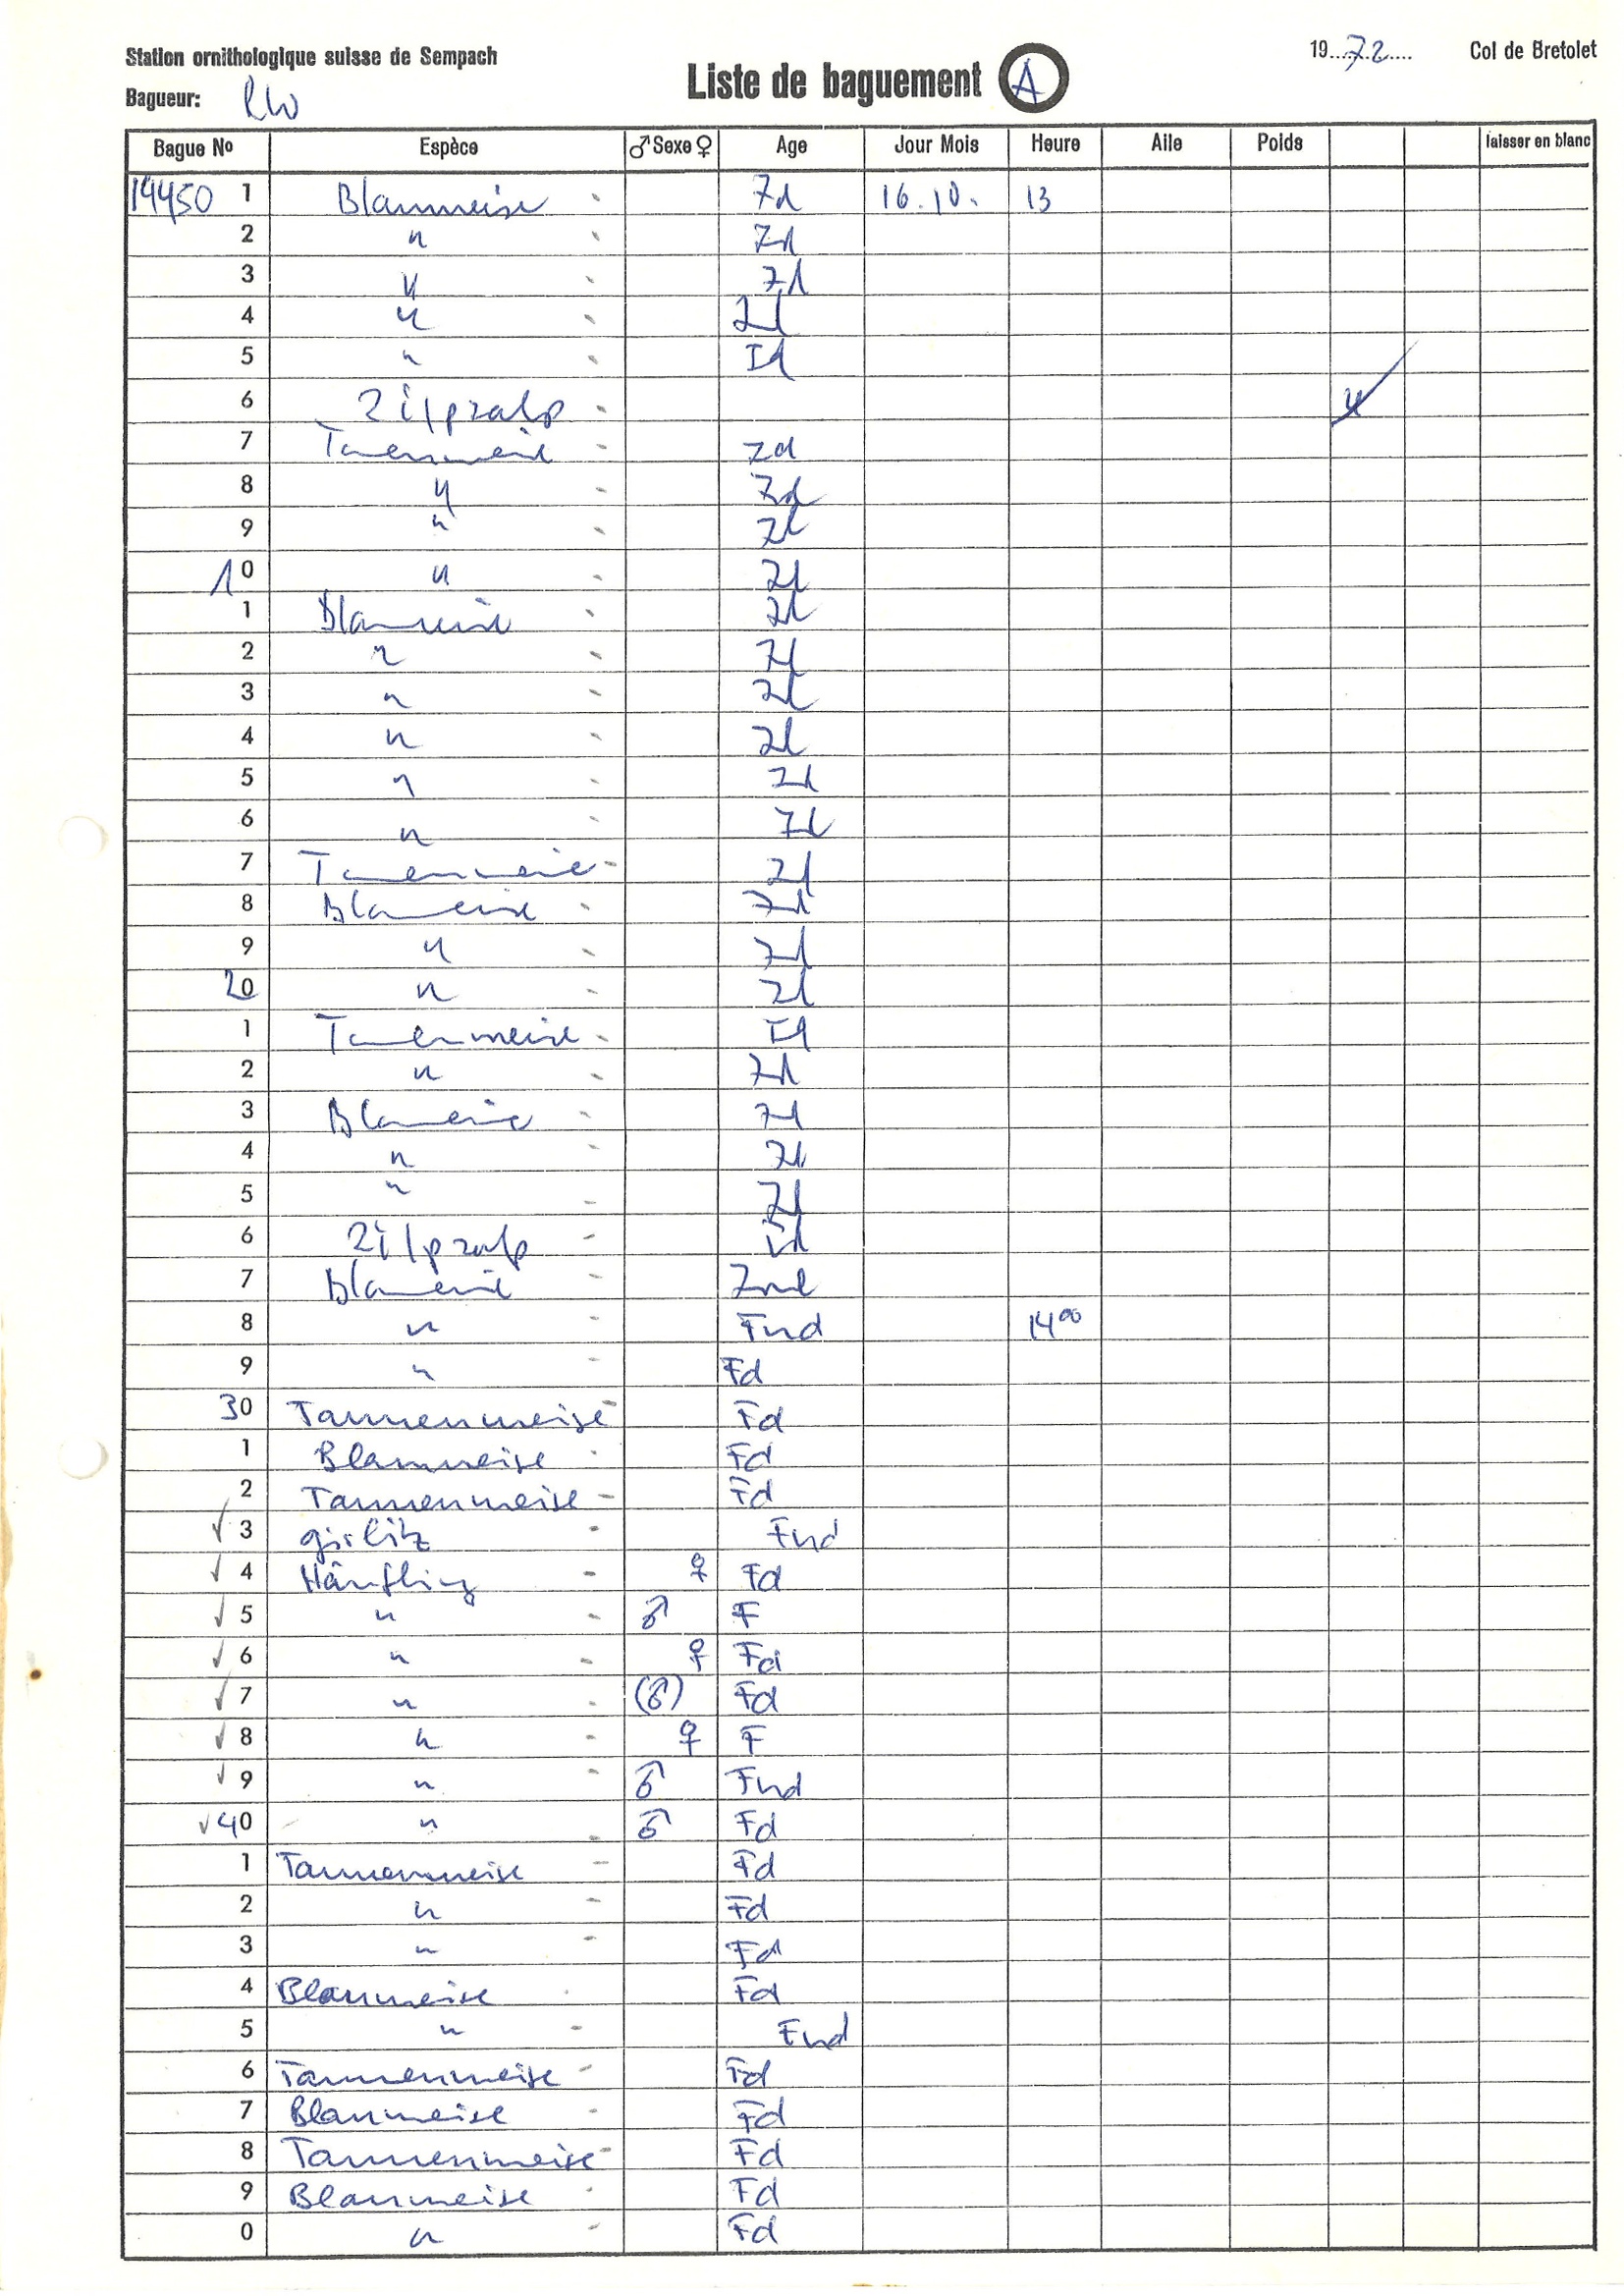 Station ornithologique suisse de Sempach
19...72.... Col de Bretolet
Liste de baguement A
Bagueur: RW
Bague No Espèce ♂ Sexe ♀ Age Jour Mois Heure Aile Poids laisser en blanc
194501 Blaumeise - Zd 16.10. 13
2 " - Zd
3 " - Zd
4 " - Zd
5 " - Zd
6 Zilpzalp -
7 Tannenmeise - Zd
8 " - Zd
9 " - Zd
10 " - Zd
1 Blaumeise - Zd
2 " - Zd
3 " - Zd
4 " - Zd
5 " - Zd
6 " - Zd
7 Tannenmeise - Zd
8 Blaumeise - Zd
9 " - Zd
20 " - Zd
1 Tannenmeise - Zd
2 " - Zd
3 Blaumeise - Zd
4 " - Zd
5 " - Zd
6 Zilpzalp -
7 Blaumeise - Znd
8 " - Fnd 14⁰⁰
9 " - Fd
30 Tannenmeise - Fd
1 Blaumeise - Fd
2 Tannenmeise - Fd
✓ 3 Girlitz - Fnd
✓ 4 Hänfling - ♀ Fd
✓ 5 " - ♂ F
✓ 6 " - ♀ Fd
✓ 7 " - (♂) Fd
✓ 8 " - ♀ F
✓ 9 " - ♂ Fnd
✓ 40 " - ♂ Fd
1 Tannenmeise - Fd
2 " - Fd
3 " - Fd
4 Blaumeise - Fd
5 " - Fnd
6 Tannenmeise - Fd
7 Blaumeise - Fd
8 Tannenmeise - Fd
9 Blaumeise - Fd
0 " - Fd